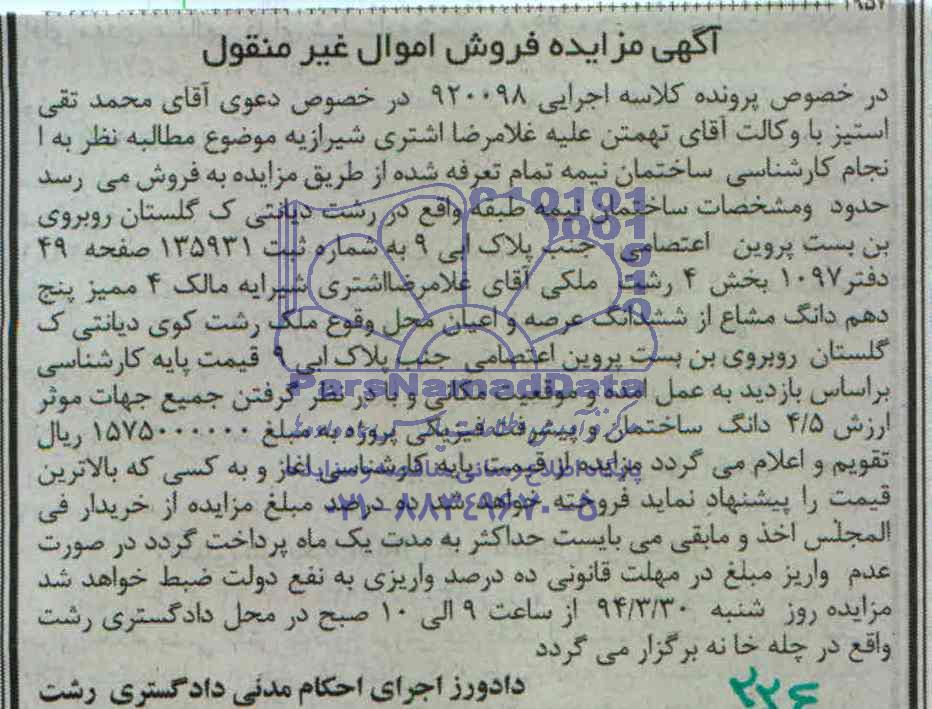 ۱۹۵۲
آگهی مزایده فروش اموال غیر منقول
در خصوص پرونده کلاسه اجرایی ۹۲۰۰۹۸ در خصوص دعوی آقای محمد تقی
استیز با وکالت آقای تهمتن علیه غلامرضا اشتری شیرازیه موضوع مطالبه نظر به ا
نجام کارشناسی ساختمان نیمه تمام تعرفه شده از طریق مزایده به فروش می رسد
حدود ومشخصات ساختمان نیمه طبقه واقع در رشت دیانتی ک گلستان روبروی
بن بست پروین اعتصامی جنب پلاک ابی ۹ به شماره ثبت ۱۳۵۹۳۱ صفحه ۴۹
دفتر۱۰۹۷ بخش ۴ رشت ملکی آقای غلامرضااشتری شیرایه مالک ۴ ممیز پنج
دهم دانگ مشاع از ششدانگ عرصه و اعیان محل وقوع ملک رشت کوی دیانتی ک
گلستان روبروی بن بست پروین اعتصامی جنب پلاک ابی ۹ قیمت پایه کارشناسی
براساس بازدید به عمل امده و موقعیت مکانی و با در نظر گرفتن جمیع جهات موثر
ارزش ۴/۵ دانگ ساختمان و پیشرفت فیزیکی پروژه به مبلغ ریال
تقویم و اعلام می گردد مزایده از قیمت پایه کارشناسی اغاز و به کسی که بالاترین
قیمت را پیشنهاد نماید فروخته خواهد شد ده درصد مبلغ مزایده از خریدار فی
المجلس اخذ و مابقی می بایست حداکثر به مدت یک ماه پرداخت گردد در صورت
عدم واریز مبلغ در مهلت قانونی ده درصد واریزی به نفع دولت ضبط خواهد شد
مزایده روز شنبه ۹۴/۳/۳۰ از ساعت ۹ الی ۱۰ صبح در محل دادگستری رشت
واقع در چله خا نه برگزار می گردد
دادورز اجرای احکام مدنی دادگستری رشت
ParsNamadData
پایگاه اطلاع رسانی مناقصه و مزایده
۰۲۱-۸۸۳۴۹۶۷۰-۵